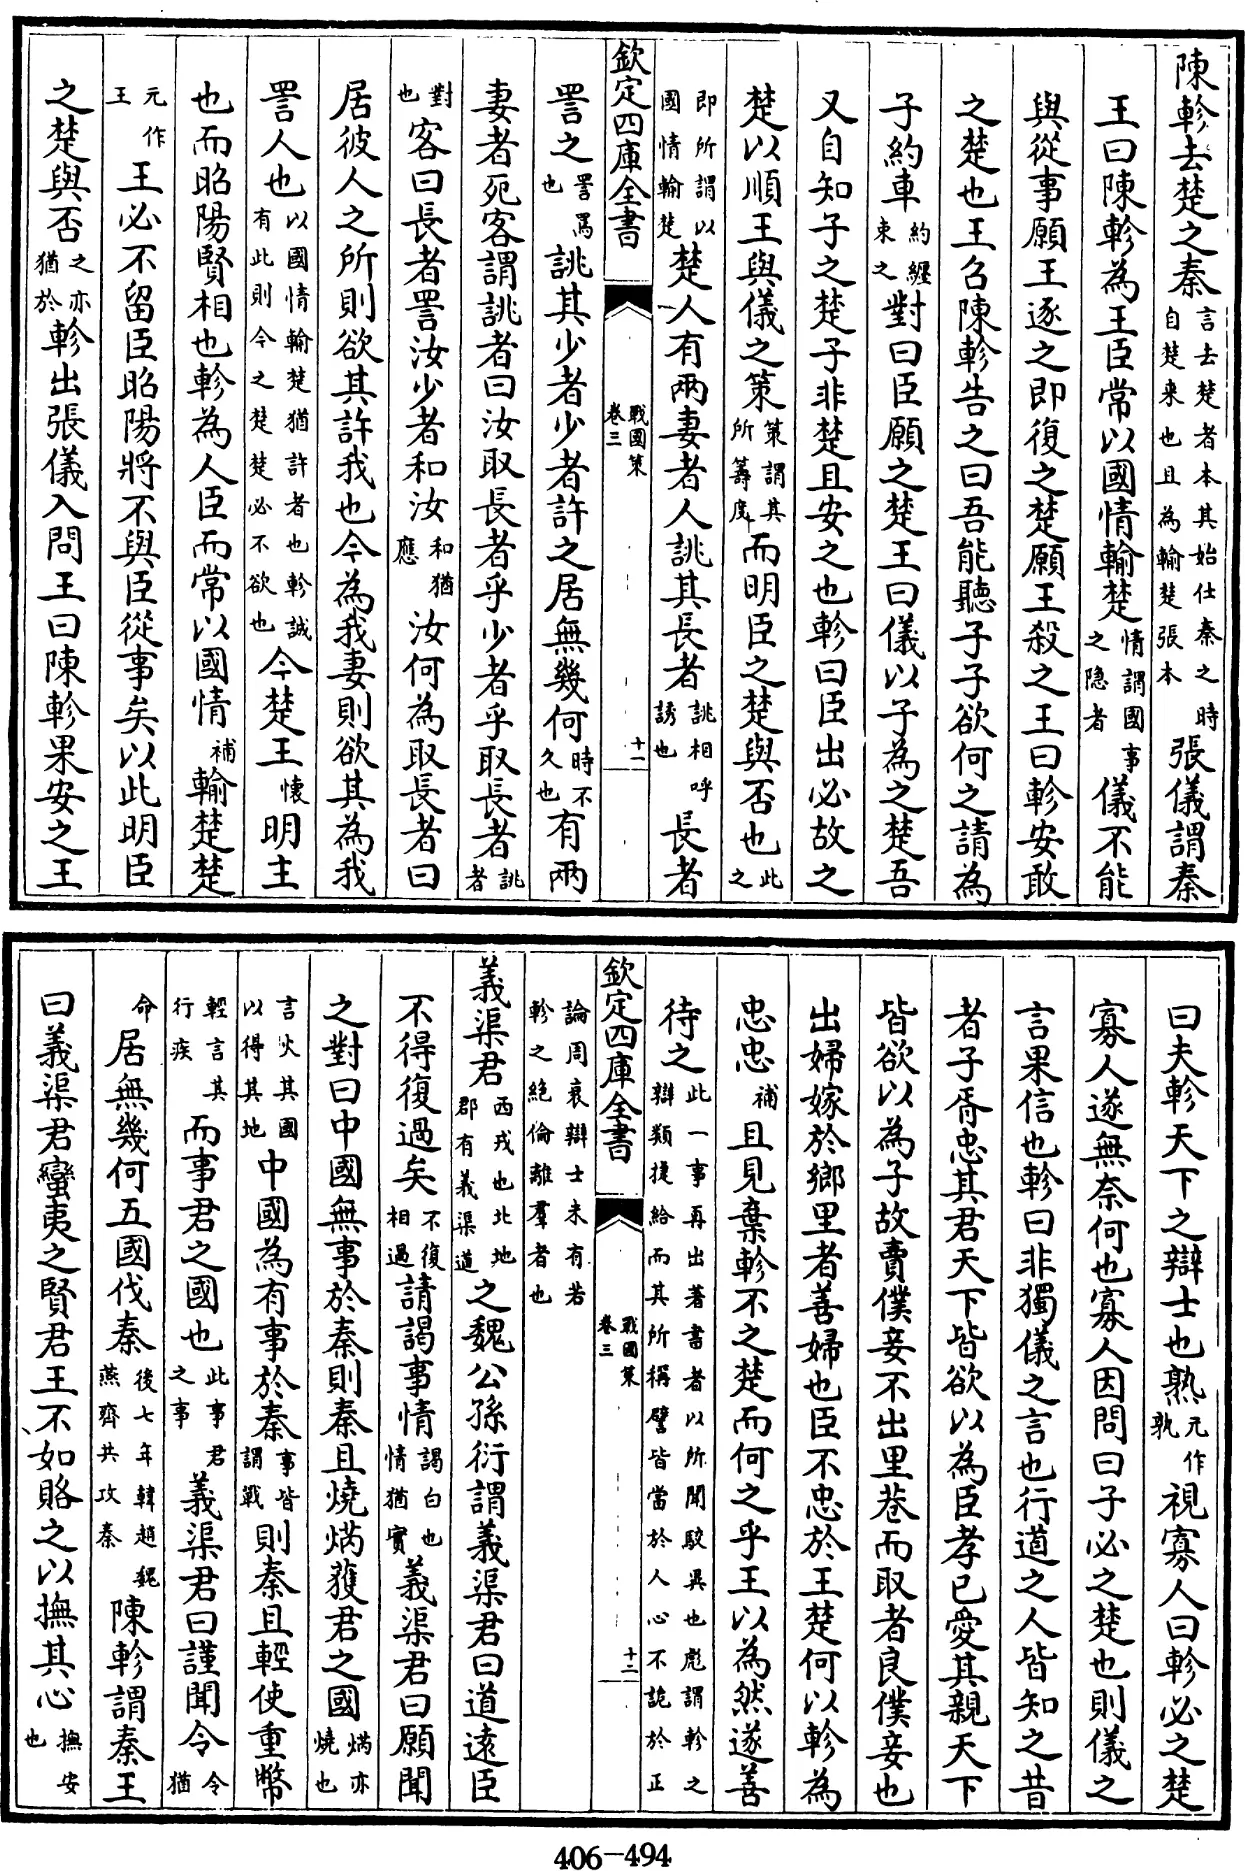 陳軫去楚之秦言去楚者本其始仕秦之時自楚来也且為輸楚張本張儀謂秦
王曰陳軫為王臣常以國情輸楚情謂國事之隐者儀不能
與從事願王逐之即復之楚願王殺之王曰軫安敢
之楚也王召陳軫告之曰吾能聽子子欲何之請為
子約車約纒束之對曰臣願之楚王曰儀以子為之楚吾
又自知子之楚子非楚且安之也軫曰臣出必故之
楚以順王與儀之策策謂其所籌度而明臣之楚與否也此之
即所謂以國情輸楚楚人有兩妻者人誂其長者誂相呼誘也長者
欽定四庫全書 戰國策 卷三 十一
詈之詈罵也誂其少者少者許之居無幾何時不久也有兩
妻者死客謂誂者曰汝取長者乎少者乎取長者誂者
對也客曰長者詈汝少者和汝和猶應汝何為取長者曰
居彼人之所則欲其許我也今為我妻則欲其為我
詈人也以國情輸楚猶許者也軫誠有此則今之楚楚必不欲也今楚王懐明主
也而昭陽賢相也軫為人臣而常以國情補輸楚楚
元作王王必不留臣昭陽將不與臣從事矣以此明臣
之楚與否之亦猶於軫出張儀入問王曰陳軫果安之王
曰夫軫天下之辯士也熟元作孰視寡人曰軫必之楚
寡人遂無奈何也寡人因問曰子必之楚也則儀之
言果信也軫曰非獨儀之言也行道之人皆知之昔
者子胥忠其君天下皆欲以為臣孝已愛其親天下
皆欲以為子故賣僕妾不出里巷而取者良僕妾也
出婦嫁於鄉里者善婦也臣不忠於王楚何以軫為
忠忠補且見棄軫不之楚而何之乎王以為然遂善
待之此一事再出著書者以所聞駁異也彪謂軫之辯類捷給而其所稱譬皆當於人心不詭於正
欽定四庫全書 戰國策 卷三 十二
論周衰辯士未有若軫之絶倫離羣者也
義渠君西戎也北地郡有義渠道之魏公孫衍謂義渠君曰道遠臣
不得復過矣不復相過請謁事情謁白也情猶實義渠君曰願聞
之對曰中國無事於秦則秦且燒焫獲君之國焫亦燒也
言火其國以得其地中國為有事於秦事皆謂戰則秦且輕使重幣
輕言其行疾而事君之國也此事君之事義渠君曰謹聞令令猶
命居無幾何五國伐秦後七年韓趙魏燕齊共攻秦陳軫謂秦王
曰義渠君蠻夷之賢君王不如賂之以撫其心撫安也
406-494